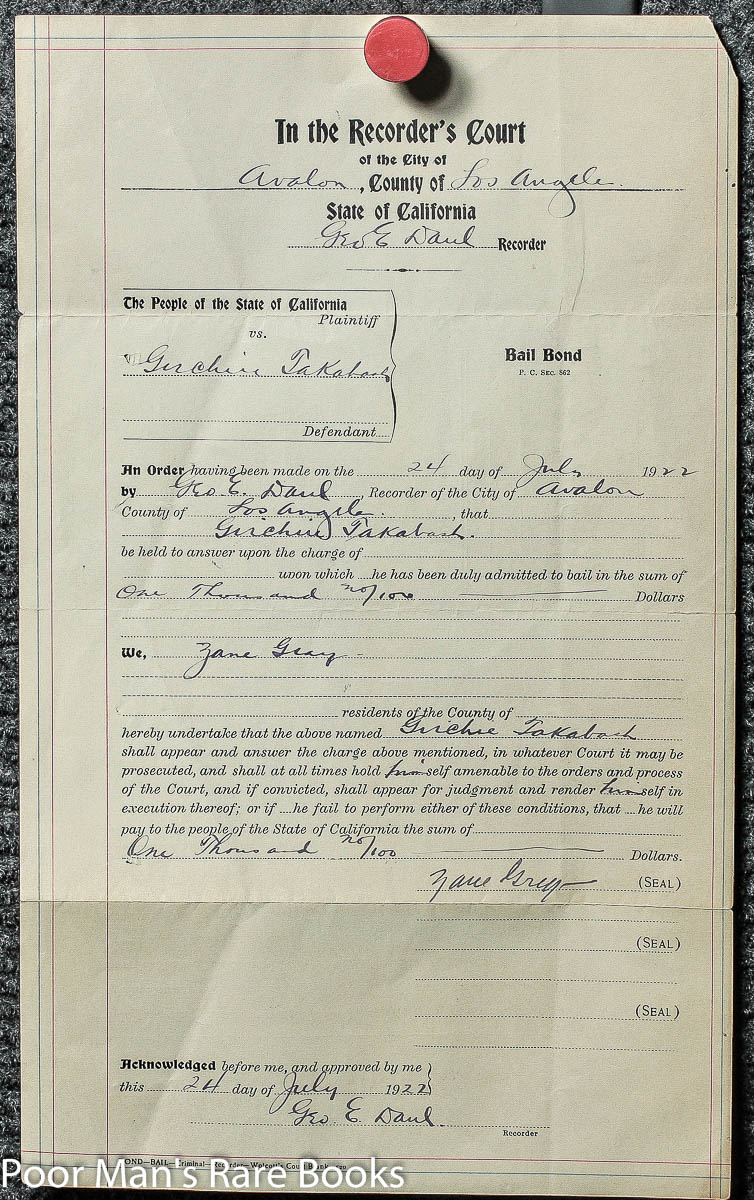 In the Recorder's Court
of the City of
Avalon, County of Los Angele.
State of California
Geo E Daul Recorder
The People of the State of California
Plaintiff
vs.
Girchiri Takabash
Defendant
Bail Bond
P. C. SEC. 862
An Order having been made on the 24 day of July 1922
by Geo E. Daul, Recorder of the City of Avalon
County of Los Angele., that
Girchiri Takabash.
be held to answer upon the charge of
upon which ....he has been duly admitted to bail in the sum of
One Thousand no/100 Dollars
We, Zane Gray
residents of the County of
hereby undertake that the above named Girchie Takabash
shall appear and answer the charge above mentioned, in whatever Court it may be
prosecuted, and shall at all times hold himself amenable to the orders and process
of the Court, and if convicted, shall appear for judgment and render himself in
execution thereof; or if ....he fail to perform either of these conditions, that ....he will
pay to the people of the State of California the sum of
One Thousand no/100 Dollars.
Zane Grey (SEAL)
(SEAL)
(SEAL)
Acknowledged before me, and approved by me
this 24 day of July 1922
Geo E. Daul.
Recorder
OND—BAIL—Criminal—Recorder—Wolcott's Court Blank
Poor Man's Rare Books